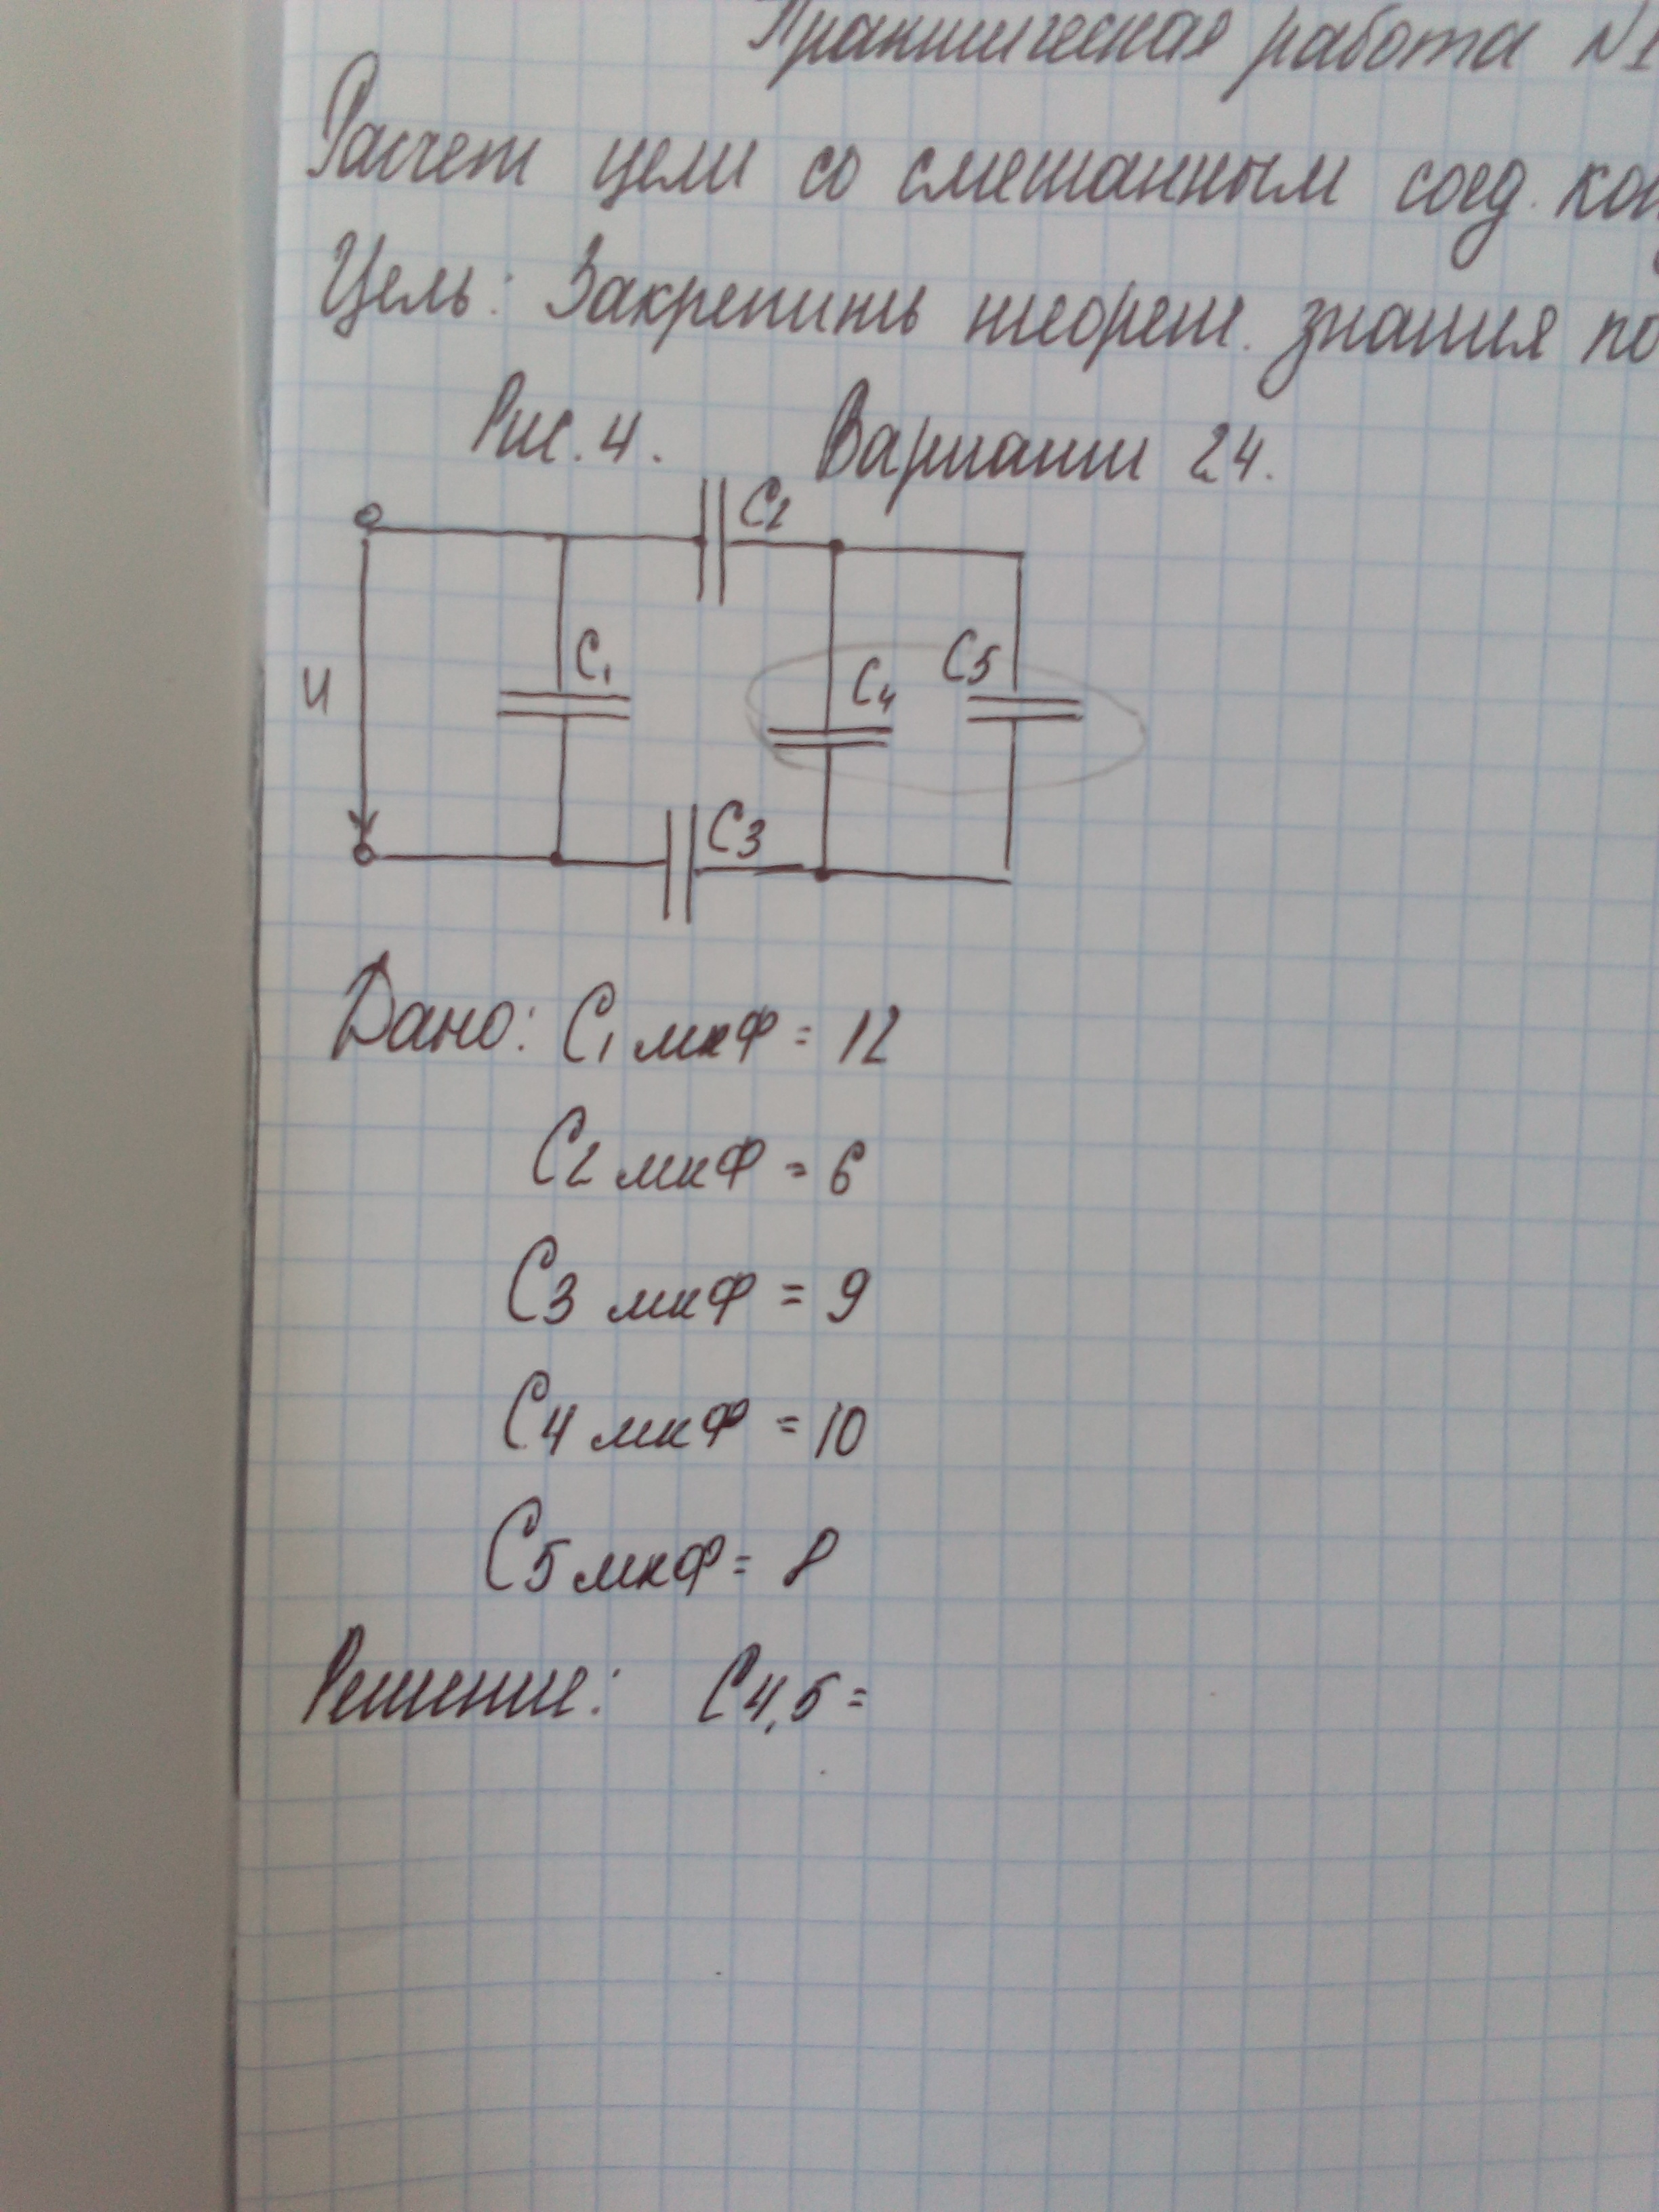 Практическая работа №1
Расчет цепи со смешанным соед. кон
Цель: Закрепить теорет. знания по
Рис. 4. Вариант 24.
C2
U
C1
C4
C5
C3
Дано: C1 мкФ = 12
C2 мкФ = 6
C3 мкФ = 9
C4 мкФ = 10
C5 мкФ = 8
Решение: C4,5 =